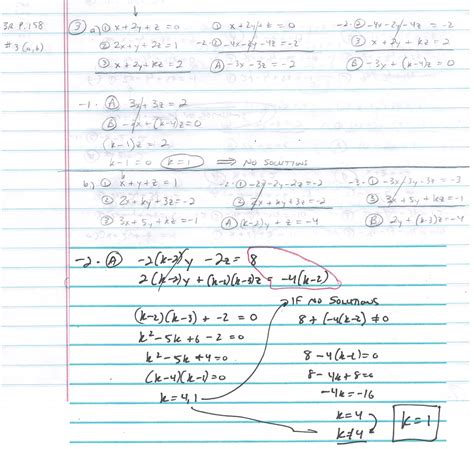 3R P.158
#3(a,b)
③ a) ① x + 2y + z = 0
② 2x + y + 2z = 1
③ x + 2y + kz = 2
① x + 2y + z = 0
-2·② -4x - 2y - 4z = -2
Ⓐ -3x - 3z = -2
-2·② -4x - 2y - 4z = -2
③ x + 2y + kz = 2
Ⓑ -3x + (k-4)z = 0
-1·Ⓐ 3x + 3z = 2
Ⓑ -3x + (k-4)z = 0
(k-1)z = 2
k-1 = 0 k=1 ⇒ NO SOLUTIONS
b) ① x + y + z = 1
② 2x + ky + 3z = -2
③ 3x + 5y + kz = -1
-2·① -2x - 2y - 2z = -2
② 2x + ky + 3z = -2
Ⓐ (k-2)y + z = -4
-3·① -3x - 3y - 3z = -3
③ 3x + 5y + kz = -1
Ⓑ 2y + (k-3)z = -4
-2·Ⓐ -2(k-2)y - 2z = 8
2(k-2)y + (k-2)(k-3)z = -4(k-2)
(k-2)(k-3) + -2 = 0
k² - 5k + 6 - 2 = 0
k² - 5k + 4 = 0
(k-4)(k-1) = 0
k = 4, 1
IF NO SOLUTIONS
8 + (-4(k-2)) ≠ 0
8 - 4(k-2) = 0
8 - 4k + 8 = 0
-4k = -16
k = 4
k ≠ 4
k = 1